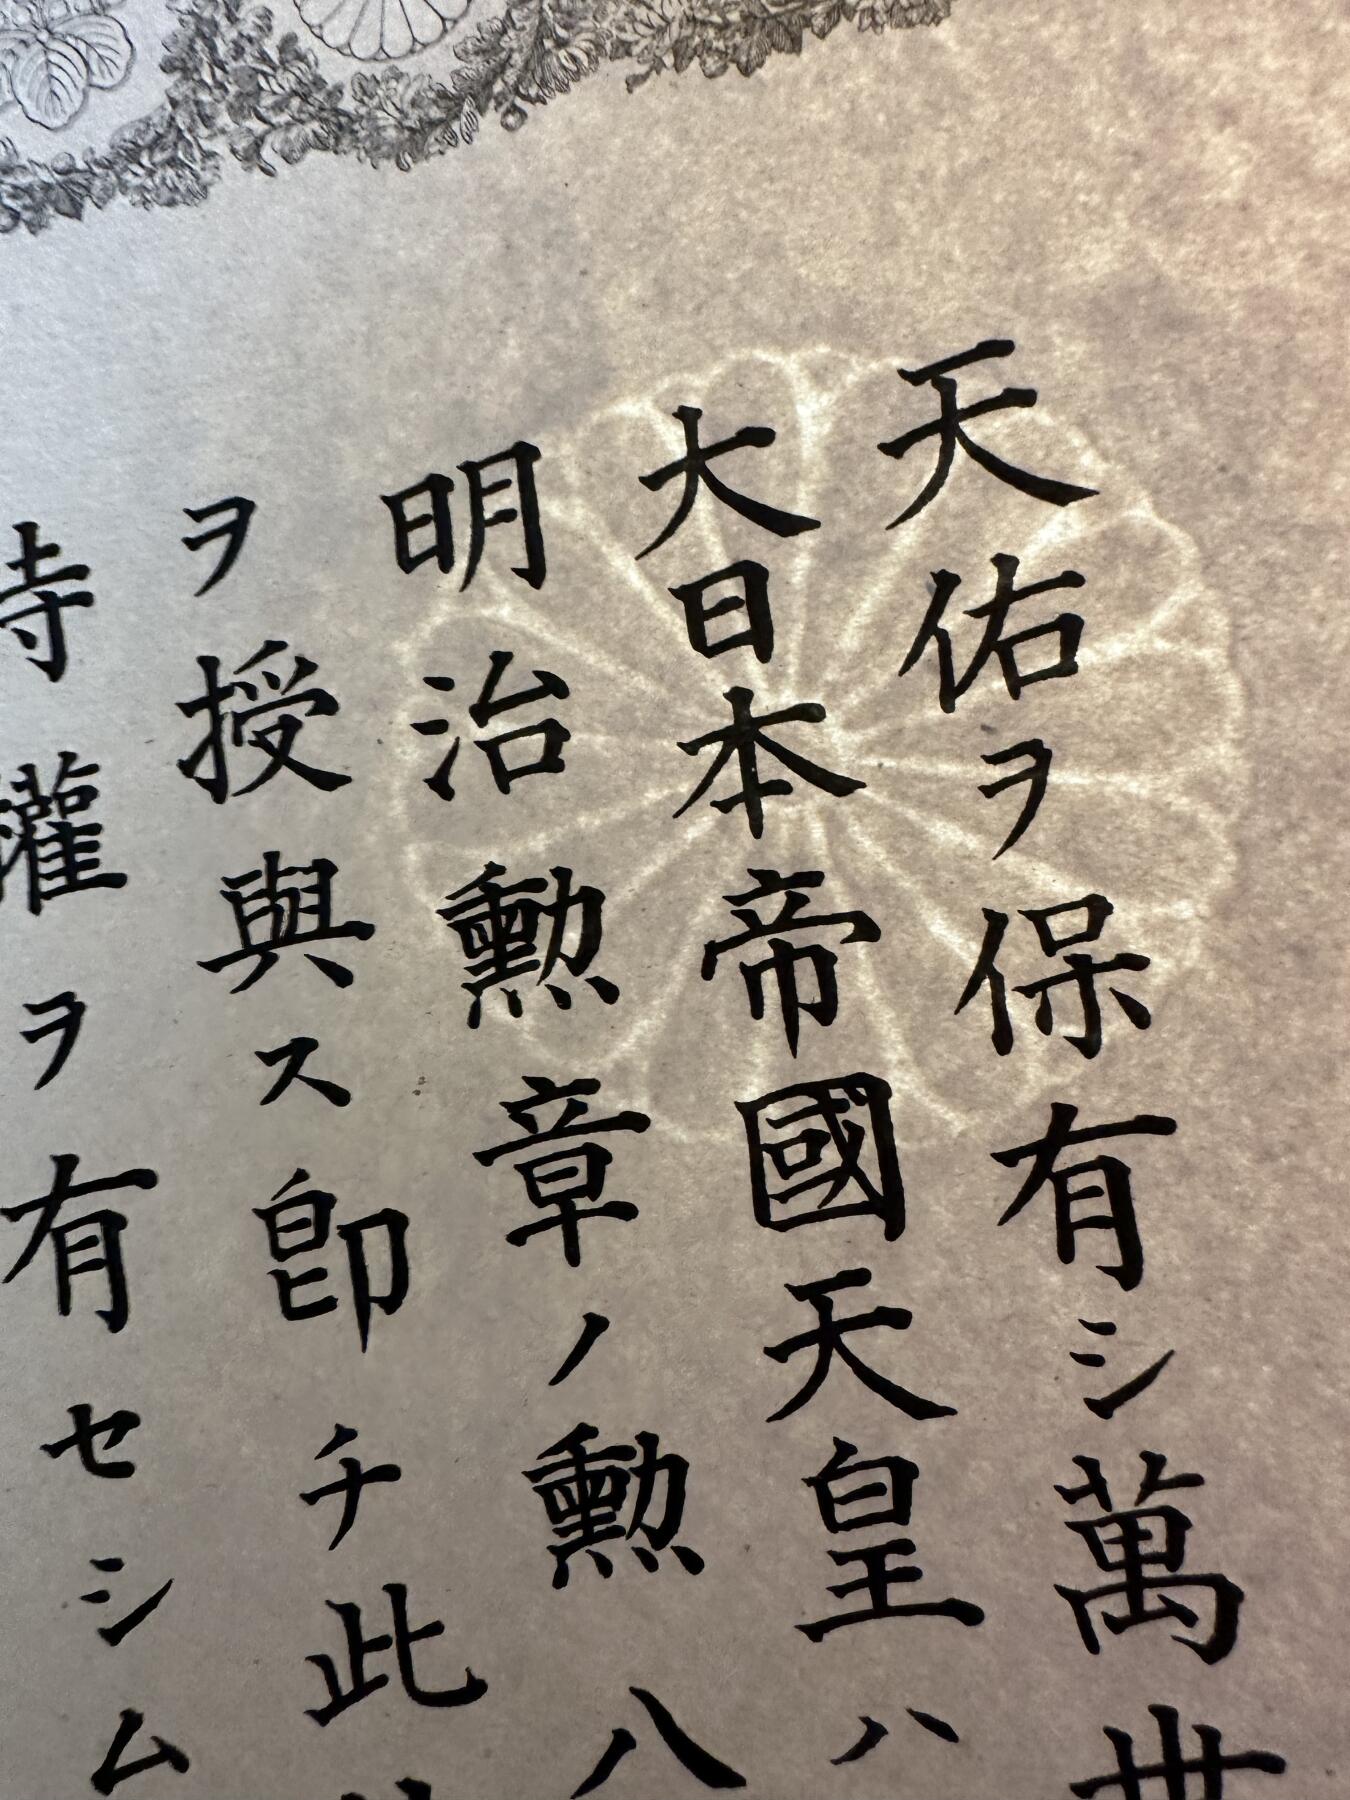 天佑ヲ保有シ萬世
大日本帝國天皇ハ
明治勲章ノ勲八
ヲ授與ス卽チ此
特權ヲ有セシム